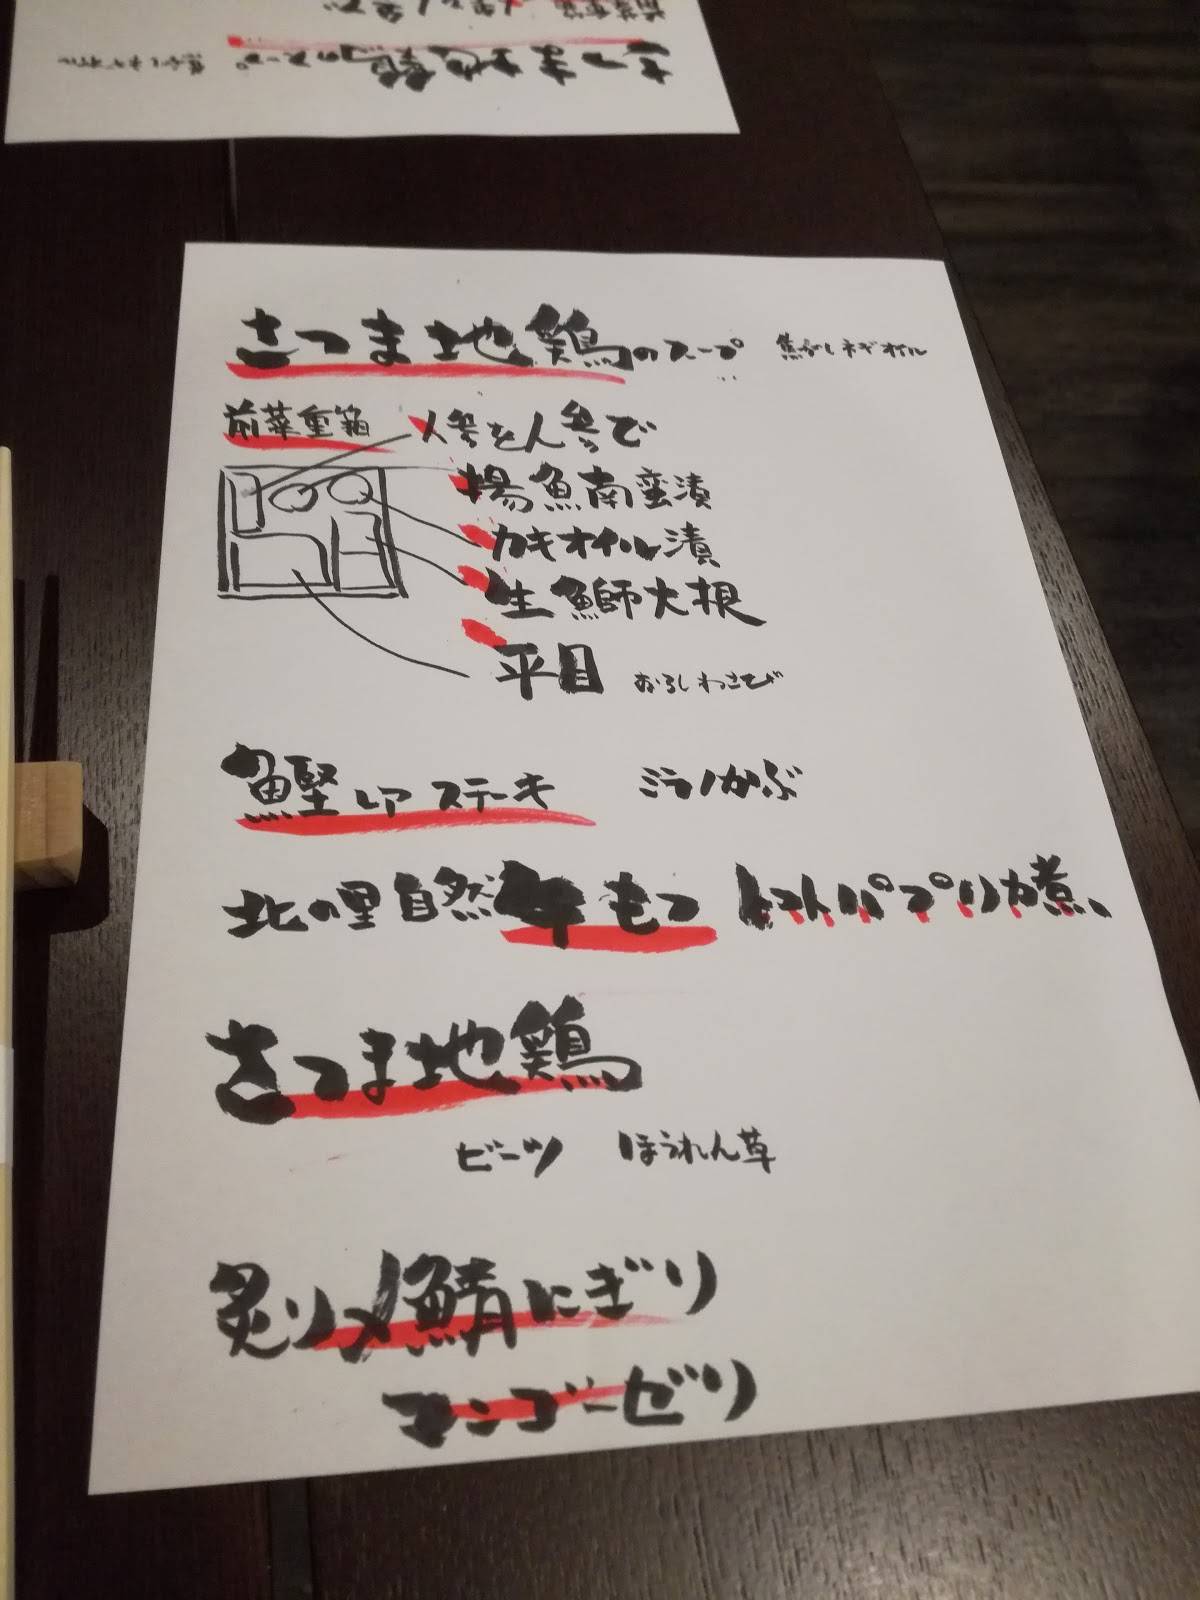 さつま地鶏のスープ 焦がしネギオイル
前菜重箱 人参を人参で
揚魚南蛮漬
カキオイル漬
生鰤大根
平目 おろしわさび
鰹レアステーキ ミラノかぶ
北の里自然牛もつ トマトパプリカ煮
さつま地鶏
ビーツ ほうれん草
炙り〆鯖にぎり
マンゴーゼリー